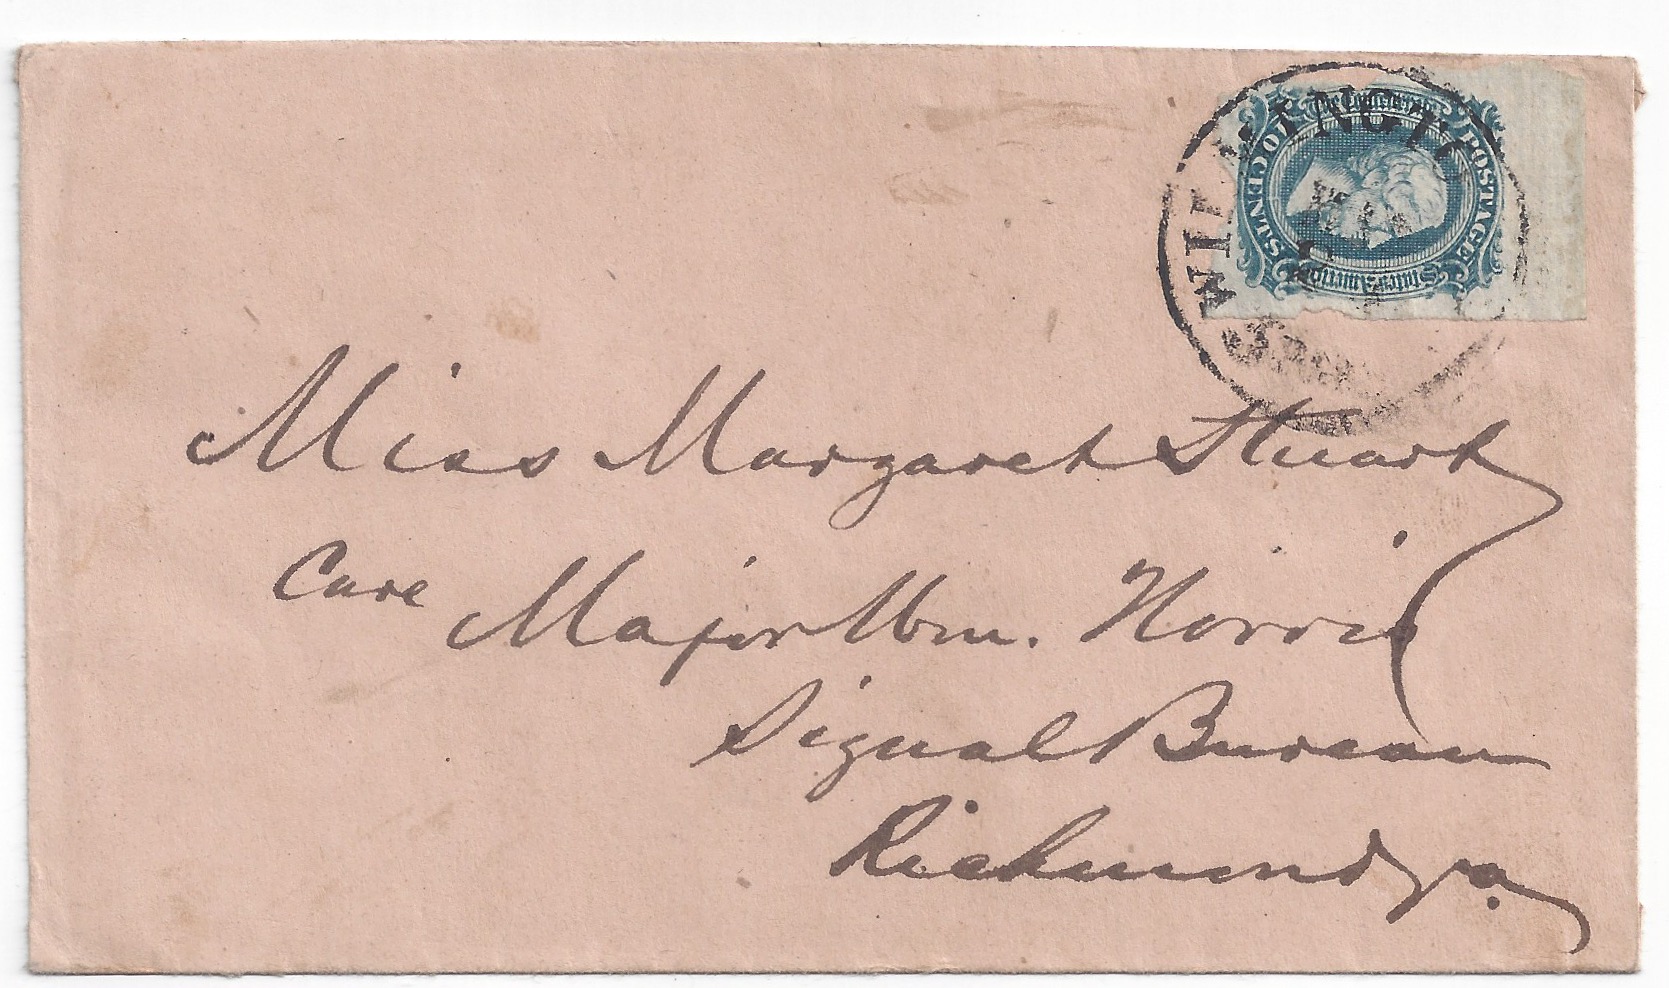 WILMINGTO
The Confederate
POSTAGE
10 CENTS
States of America
Miss Margaret Stuart
Care Major Wm. Norris
Signal Bureau
Richmond Va.